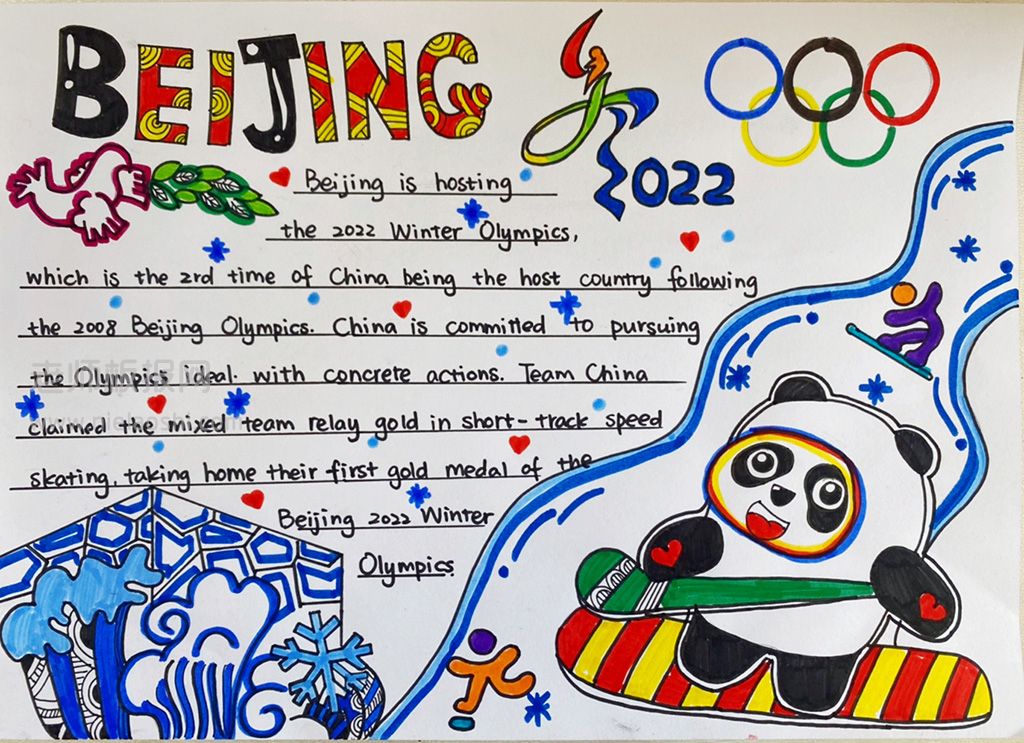 BEIJING
2022
Beijing is hosting
the 2022 Winter Olympics,
which is the 2rd time of China being the host country following
the 2008 Beijing Olympics. China is committed to pursuing
the Olympics ideal. with concrete actions. Team China
claimed the mixed team relay gold in short-track speed
skating, taking home their first gold medal of the
Beijing 2022 Winter
Olympics.